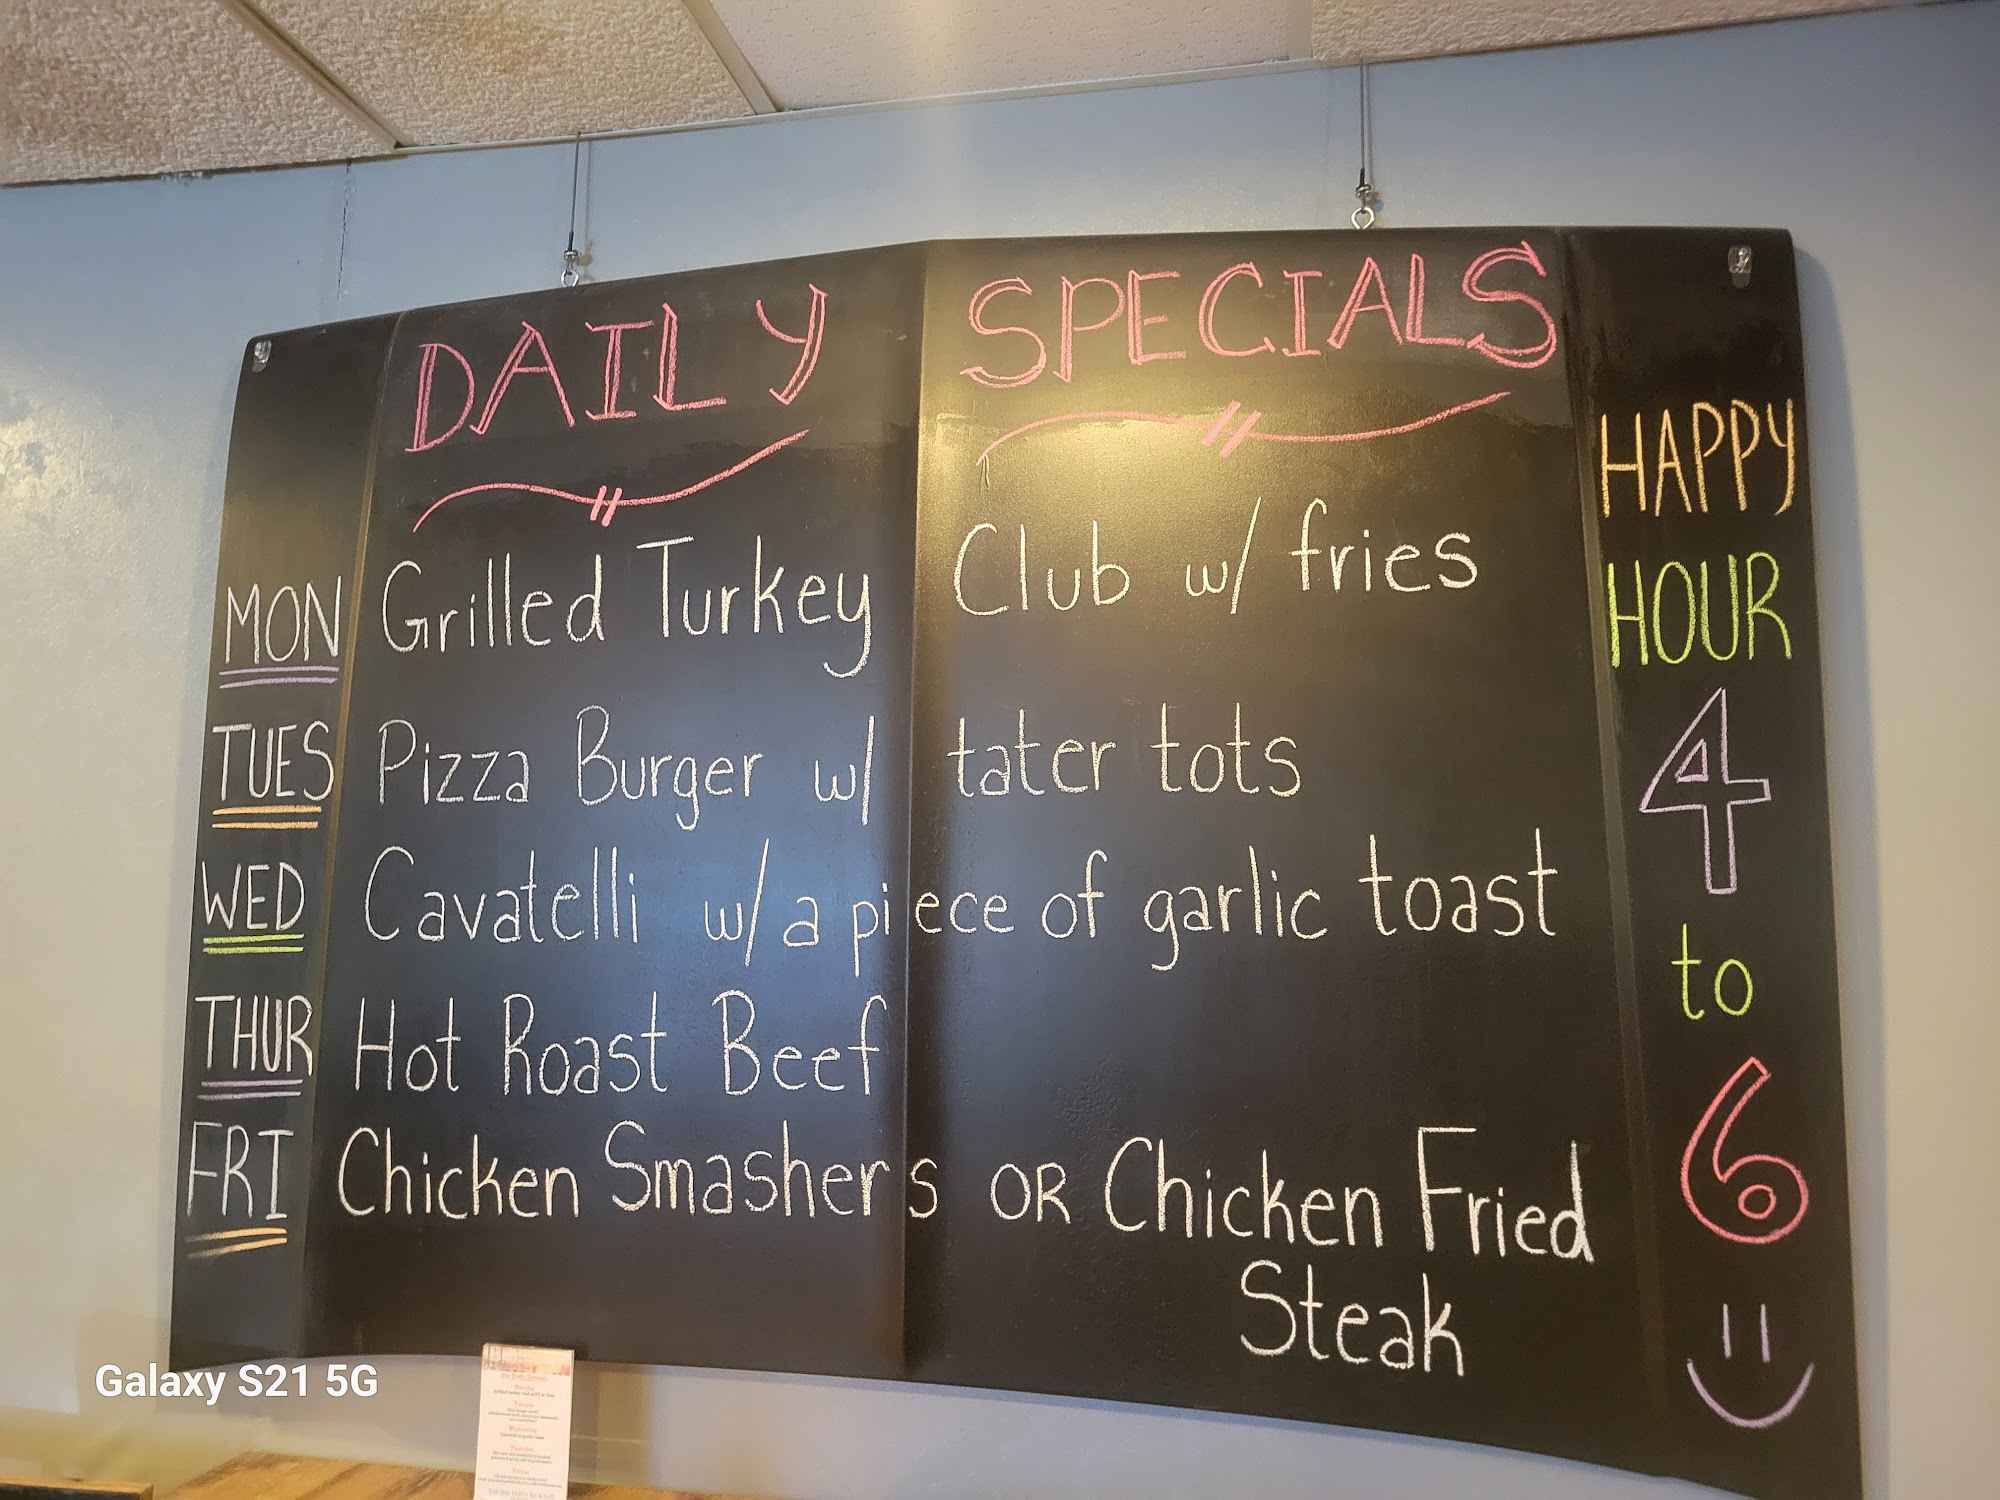 DAILY SPECIALS
MON Grilled Turkey Club w/ fries
TUES Pizza Burger w/ tater tots
WED Cavatelli w/ a piece of garlic toast
THUR Hot Roast Beef
FRI Chicken Smashers OR Chicken Fried
Steak
HAPPY
HOUR
4
to
6
Galaxy S21 5G